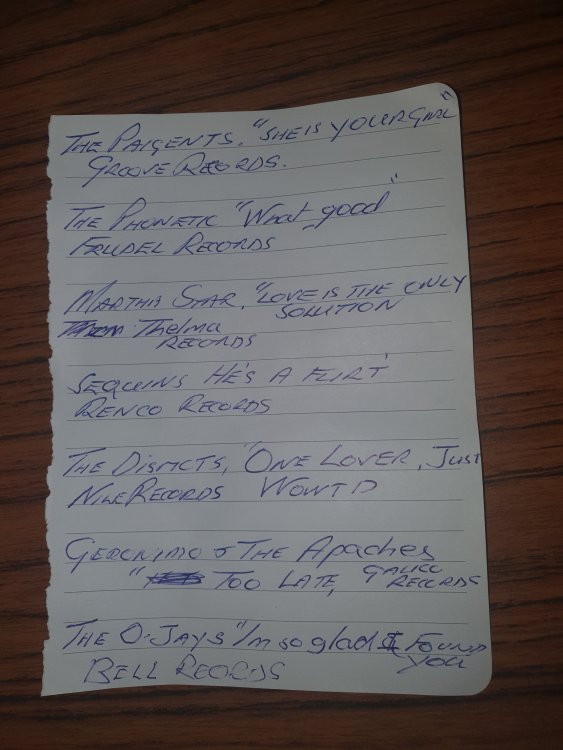 THE PAIGENTS. "SHE IS YOUR GIRL"
GROOVE RECORDS.
THE PHONETIC "What good"
FRUDEL RECORDS
MARTHA STAR, "LOVE IS THE ONLY
SOLUTION
Thelma
RECORDS
SEQUINS HE'S A FLIRT
RENCO RECORDS
THE DISMCTS, "ONE LOVER, JUST
NILE RECORDS WONT D
GERONIMO & THE Apaches
" TOO LATE, GALICO
RECORDS
THE O-JAYS "I'm so glad I FOUND
YOU
BELL RECORDS